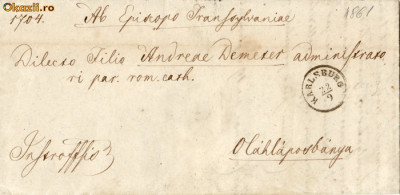 Okazii.ro
1704. Ab Episcopo Transsylvaniae
1861
Dilecto Filio Andreae Demeter administrato
ri par. rom. cath.
KARLSBURG
Oláhláposbánya